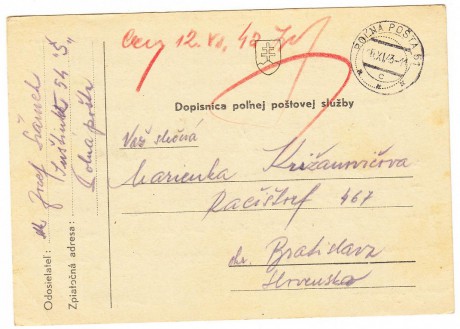 12. XI. 43
POĽNÁ POŠTA 51
XI.43-11
c
Dopisnica poľnej poštovej služby
Važ slečná
Marienka Križanovičova
Račištorf 467
okr. Bratislava
Slovensko
Odosielateľ: Jozef
Zpiatočná adresa: 54 "Š"
Polná pošta